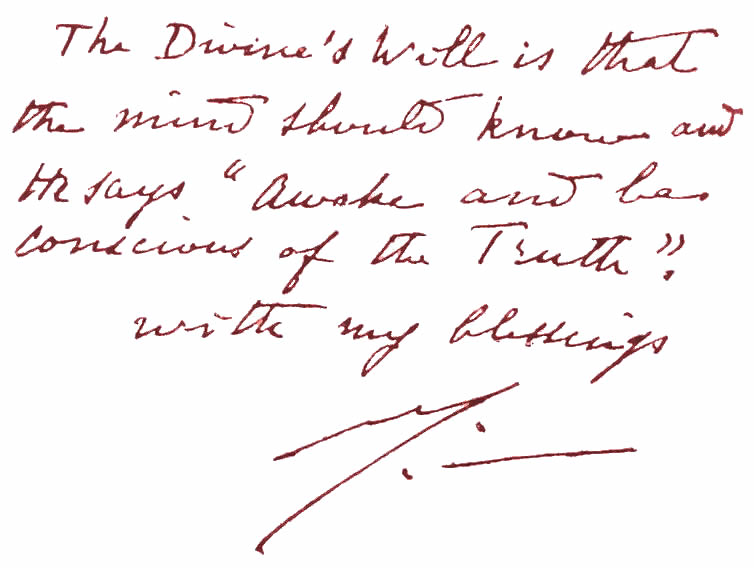 The Divine's Will is that
the mind should know and
He says "Awake and be
conscious of the Truth".
with my blessings